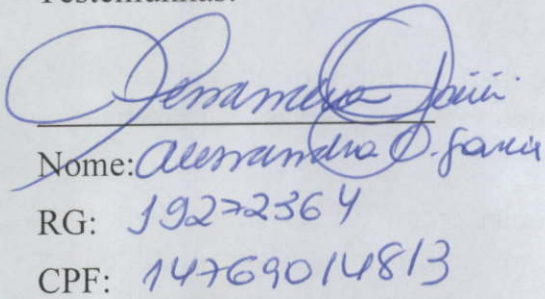 Testemunhas:
Nome: Alessandra D. Garcia
RG: 19272364
CPF: 14769014813